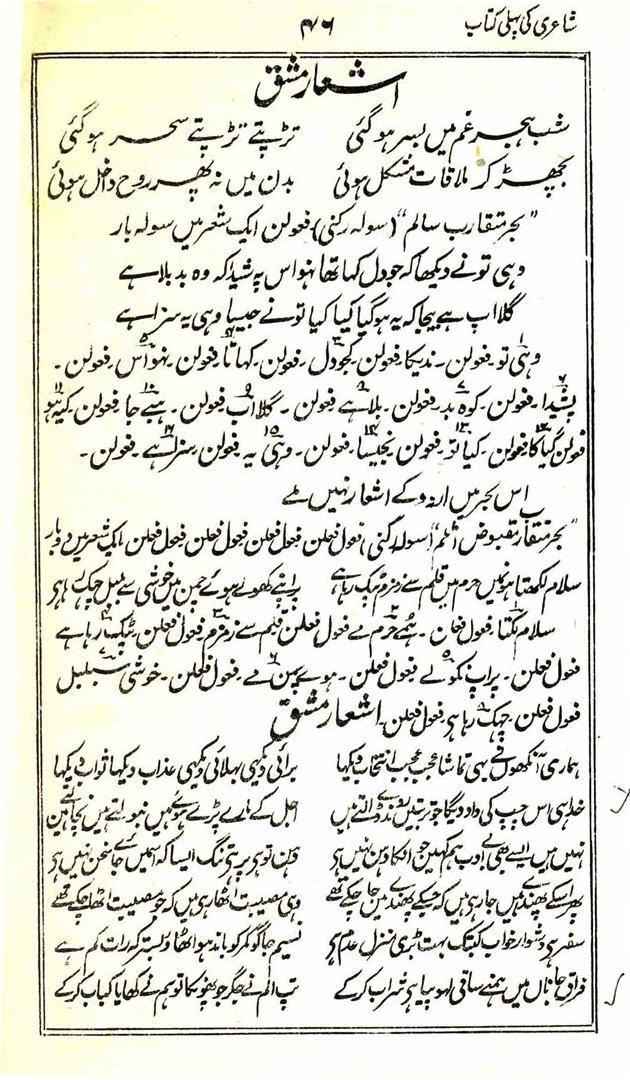 شاعری کی پہلی کتاب
۴۶
اشعار مشق
شب ہجر غم میں بسر ہو گئی تڑپتے تڑپتے سحر ہو گئی
بچھڑ کر ملاقات مشکل ہوئی بدن میں نہ پھر روح داخل ہوئی
"بحر متقارب سالم" (سولہ رکنی) فعولن ایک شعر میں سولہ بار
وہی تو نے دیکھا کہ جو دل کہا تھا نہو اس پہ شیدا کہ وہ بد بلا ہے
گلا اب ہے بیجا کہ یہ ہو گیا کیا کیا تو نے جیسا وہی یہ سزا ہے
وہی تو۔ فعولن۔ ندیکا۔ فعولن۔ کجو دل۔ فعولن۔ کہا تا۔ فعولن۔ نہو اس۔ فعولن۔
پشیدا۔ فعولن۔ کوہ بد۔ فعولن۔ بلا ہے فعولن۔ گلا اب فعولن۔ ہبے جا فعولن۔ کیہ ہو
فعولن گیا کا فعولن۔ کیا تو۔ فعولن نجیسا۔ فعولن۔ وہی یہ فعولن سزا ہے۔ فعولن۔
اس بحر میں اردو کے اشعار نہیں ملے
"بحر متقارب مقبوض اثلم" (سولہ رکنی) فعول فعلن فعول فعلن فعول فعلن فعول فعلن ایک شعر میں دو بار
سلام لکھتا ہوں میں حرم میں قلم سے زمزم ٹپک رہا ہے پر اپنے کھولے ہوئے چمن میں خوشی سے بلبل چہک رہا ہے
سلام لکتا۔ فعول فعلن۔ ہمے حرم مے فعول فعلن قلم سے زمزم فعول فعلن۔ ٹپک رہا ہے
فعول فعلن۔ پر اپنے کولے۔ فعول فعلن۔ ہوے چمن مے۔ فعول فعلن۔ خوشی سے بلبل
فعول فعلن۔ چہک رہا ہے فعول فعلن۔ اشعار مشق
ہماری آنکھوں نے بھی تماشا عجب عجب انتخاب دیکھا برائی دیکھی بھلائی دیکھی عذاب دیکھا ثواب دیکھا
خدا ہی اس چپ کی داد دیگا جو تربتیں روندے ڈالتے ہیں اجل کے مارے پڑے ہوئے ہیں نہ بولتے ہیں نہ چالتے ہیں
نہیں ہیں ایسے بھی بے ادب ہم کہیں جو انکا دہن نہیں ہے دہن تو ہے پر ہے تنگ ایسا کہ اسمیں جائے سخن نہیں ہے
پھر اسکے پھندے میں جا رہے ہیں کہ جسکے پھندے میں جا چکے تھے وہی مصیبت اٹھا رہے ہیں کہ جو مصیبت اٹھا چکے تھے
سفر ہے دشوار خواب کب تک بہت بڑی منزل عدم ہے نسیم جاگو کمر کو باندھو اٹھاؤ بستر کہ رات کم ہے
فراق جاناں میں ہمنے ساقی لہو پیا ہے شراب کر کے تپ الم نے جگر جو پھونکا تو ہم نے کھایا کباب کر کے